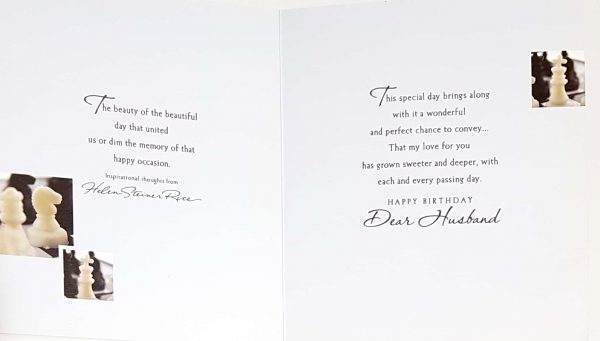 The beauty of the beautiful
day that united
us or dim the memory of that
happy occasion.
Inspirational thoughts from
Helen Steiner Rice
This special day brings along
with it a wonderful
and perfect chance to convey...
That my love for you
has grown sweeter and deeper, with
each and every passing day.
HAPPY BIRTHDAY
Dear Husband